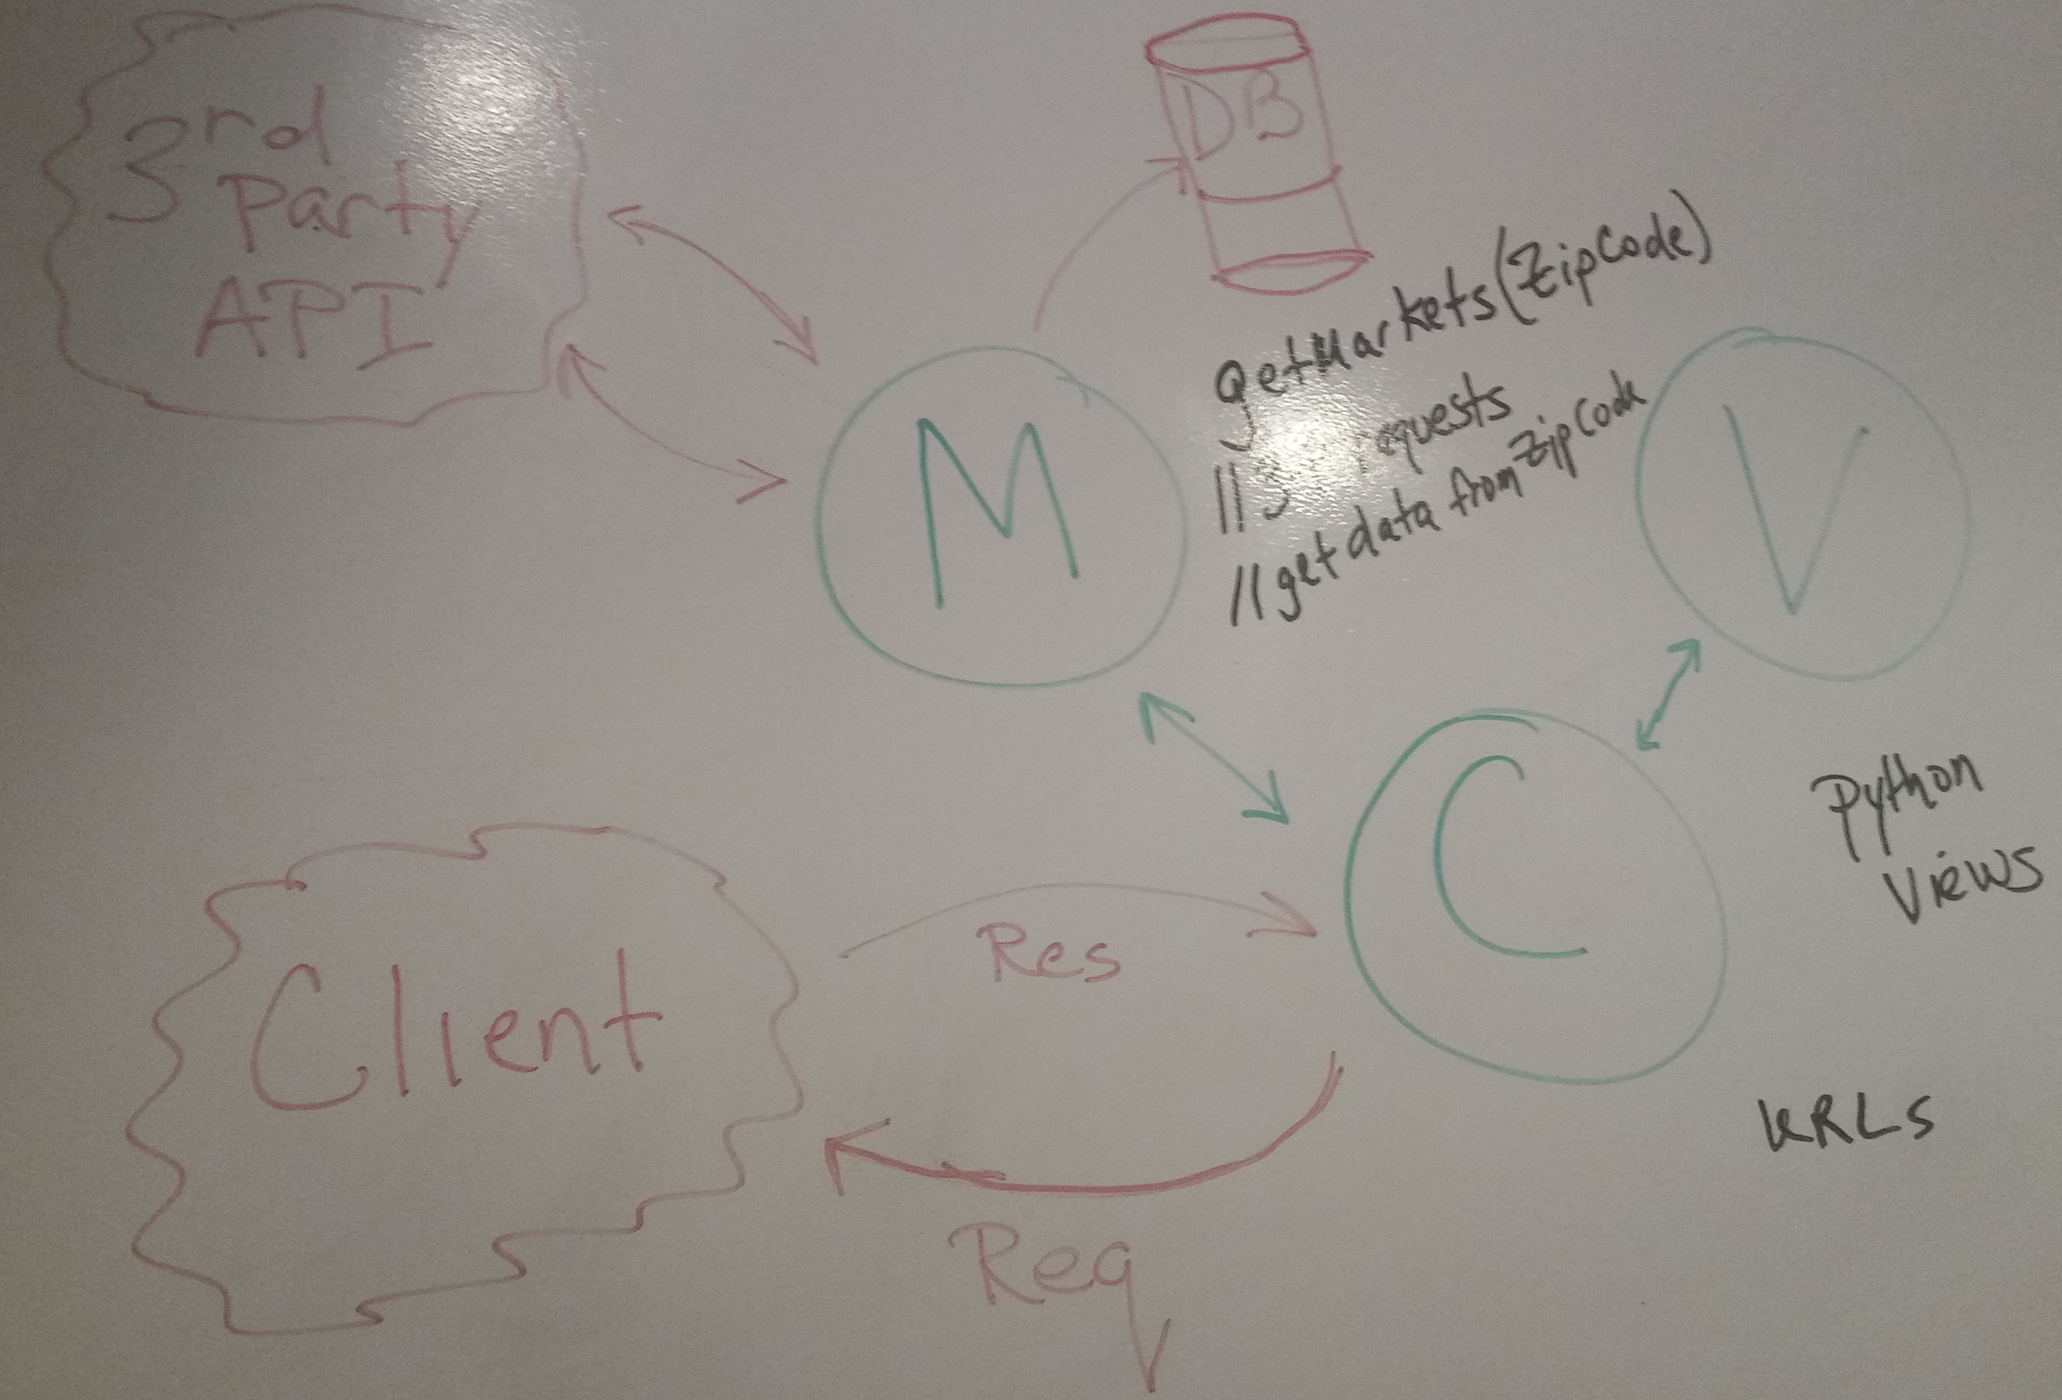 3rd
Party
API
DB
getMarkets(ZipCode)
// requests
// get data from ZipCode
M
V
C
Python
Views
Client
Res
Req
URLs